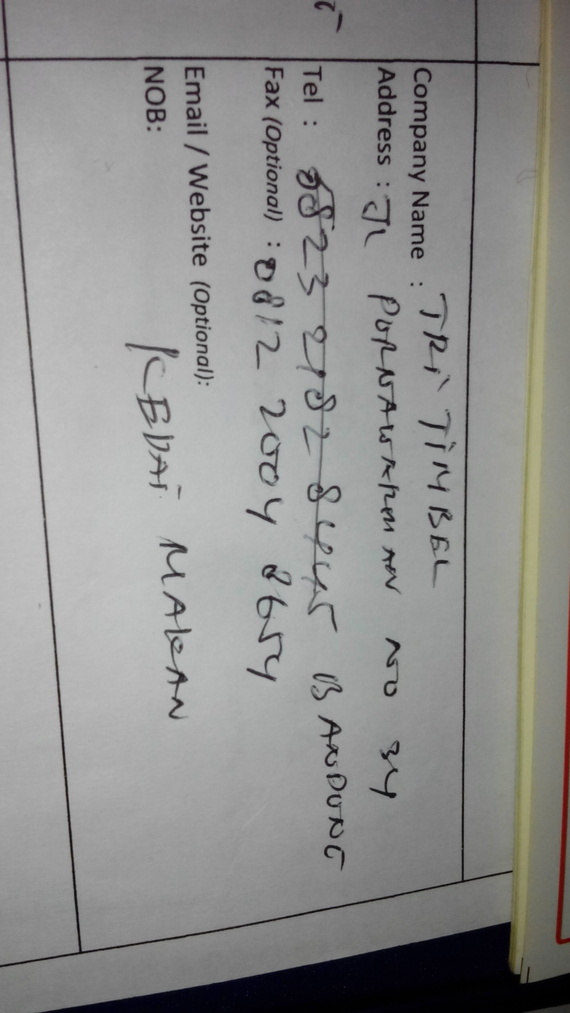 Company Name : TRi TiMBEL
Address : JL PURNAWARMAN NO 34
Tel : 0823 2182 8445 BANDUNG
Fax (Optional) : 0812 2004 8654
Email / Website (Optional):
NOB: KEDAi MAKAN